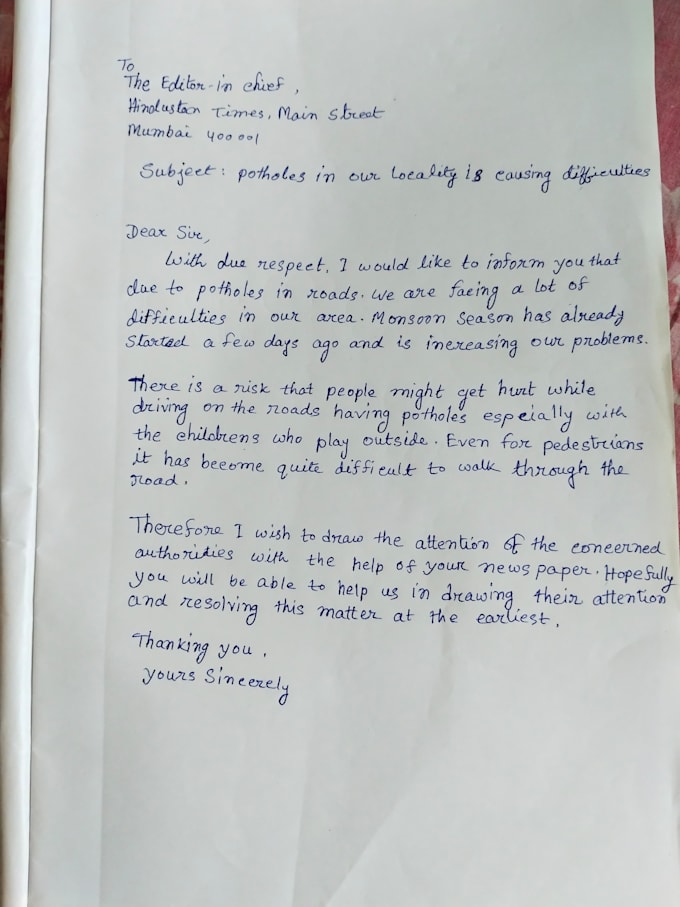 To
The Editor-in chief,
Hindustan Times, Main Street
Mumbai 400 001
Subject: potholes in our Locality is causing difficulties
Dear Sir,
With due respect, I would like to inform you that
due to potholes in roads. we are facing a lot of
difficulties in our area. Monsoon Season has already
Started a few days ago and is increasing our problems.
There is a risk that people might get hurt while
driving on the roads having potholes especially with
the childrens who play outside. Even for pedestrians
it has become quite difficult to walk through the
road.
Therefore I wish to draw the attention of the concerned
authorities with the help of your news paper. Hopefully
you will be able to help us in drawing their attention
and resolving this matter at the earliest.
Thanking you.
yours Sincerely